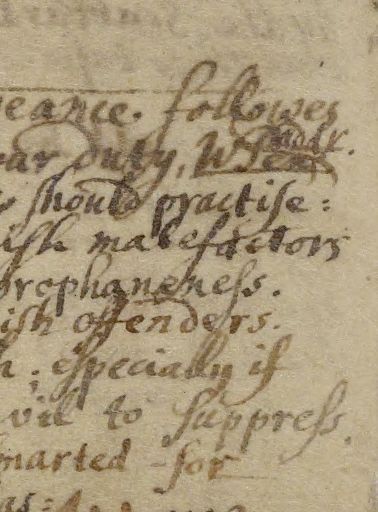 veance. followes
our duty,
should practise:
ish malefactors
prophaneness.
ish offenders.
h; especially if
vil to suppress.
marted for
as: